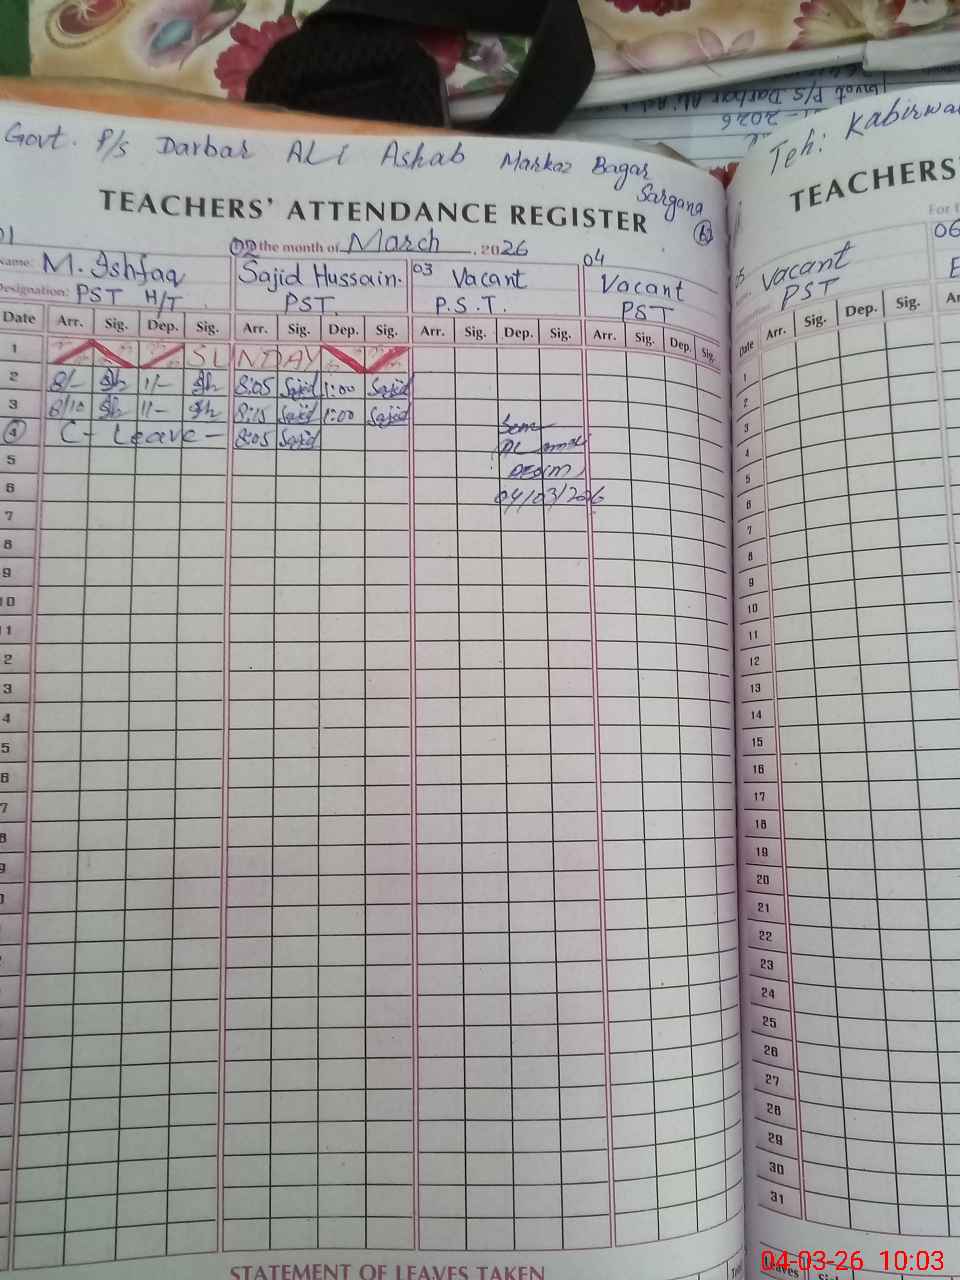 Govt. P/s Darbar ALi Ashab Markaz Bagar
Sargana
TEACHERS' ATTENDANCE REGISTER
the month of March 2026
01 02 03 04
Name: M. Ishfaq Sajid Hussain. Vacant Vacant
Designation: PST H/T PST. P.S.T. PST
Date Arr. Sig. Dep. Sig. Arr. Sig. Dep. Sig. Arr. Sig. Dep. Sig. Arr. Sig. Dep. Sig.
1 SUNDAY
2 8/- 1/- 8:05 Sajid 1:00 Sajid
3 8/10 1/- 8:15 Sajid 1:00 Sajid
4 C- Leave - 8:05 Sajid
5
6 04/03/2026
7
8
9
10
11
2
3
4
5
6
7
8
9
STATEMENT OF LEAVES TAKEN
Teh: Kabirwa
TEACHERS'
06
Vacant
PST
Date Arr. Sig. Dep. Sig.
1
2
3
4
5
6
7
8
9
10
11
12
13
14
15
16
17
18
19
20
21
22
23
24
25
26
27
28
29
30
31
Leaves
04-03-26 10:03